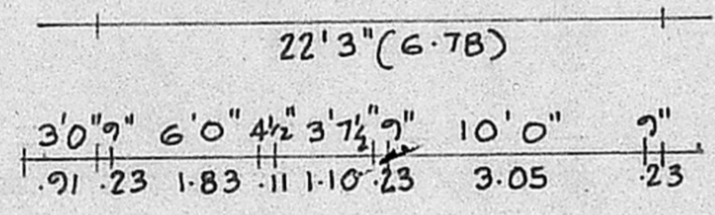 22'3"(6.78)
3'0" 9" 6'0" 4½" 3'7½" 9" 10'0" 9"
.91 .23 1.83 .11 1.10 .23 3.05 .23